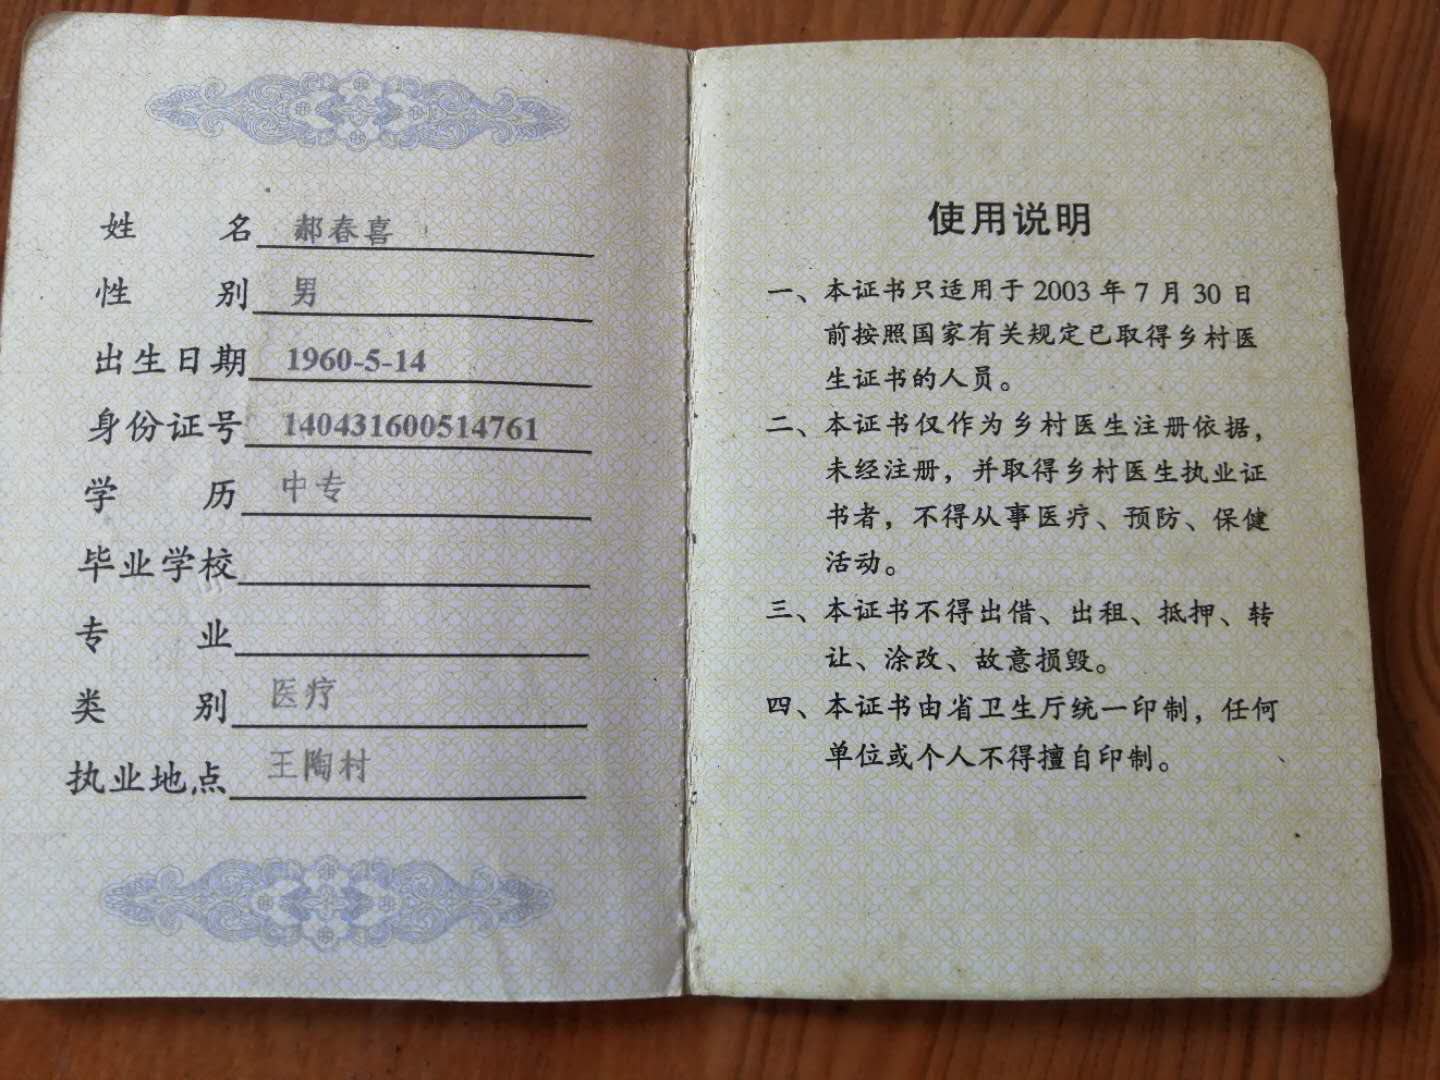 姓名 郝春喜
性别 男
出生日期 1960-5-14
身份证号 140431600514761
学历 中专
毕业学校
专业
类别 医疗
执业地点 王陶村
使用说明
一、本证书只适用于 2003 年 7 月 30 日
前按照国家有关规定已取得乡村医
生证书的人员。
二、本证书仅作为乡村医生注册依据，
未经注册，并取得乡村医生执业证
书者，不得从事医疗、预防、保健
活动。
三、本证书不得出借、出租、抵押、转
让、涂改、故意损毁。
四、本证书由省卫生厅统一印制，任何
单位或个人不得擅自印制。